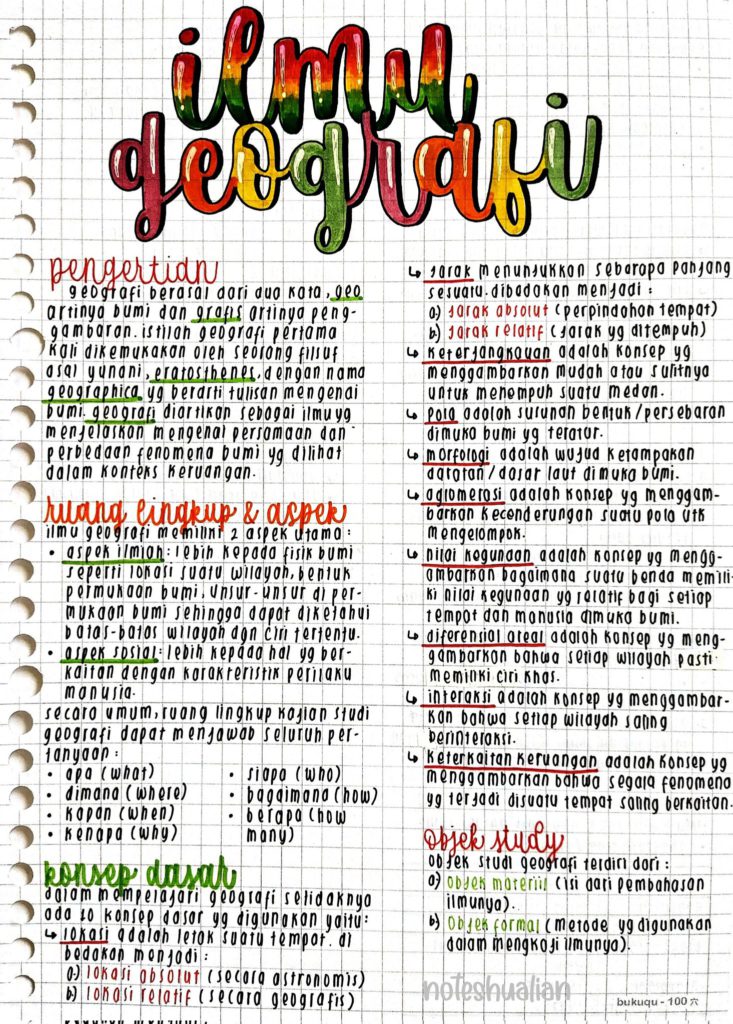 ilmu
geografi
pengertian
geografi berasal dari dua kata, geo
artinya bumi dan grafis artinya peng-
gambaran. istilah geografi pertama
kali dikemukakan oleh seorang filsuf
asal yunani, eratosthenes, dengan nama
geographica yg berarti tulisan mengenai
bumi. geografi diartikan sebagai ilmu yg
menjelaskan mengenai persamaan dan
perbedaan fenomena bumi yg dilihat
dalam konteks keruangan.
ruang lingkup & aspek
ilmu geografi memiliki 2 aspek utama:
• aspek ilmiah: lebih kepada fisik bumi
seperti lokasi suatu wilayah, bentuk
permukaan bumi, unsur-unsur di per-
mukaan bumi sehingga dapat diketahui
batas-batas wilayah dgn ciri tertentu.
• aspek sosial: lebih kepada hal yg ber-
kaitan dengan karakteristik perilaku
manusia.
secara umum, ruang lingkup kajian studi
geografi dapat menjawab seluruh per-
tanyaan:
• apa (what)
• dimana (where)
• kapan (when)
• kenapa (why)
• siapa (who)
• bagaimana (how)
• berapa (how
many)
konsep dasar
dalam mempelajari geografi setidaknya
ada 10 konsep dasar yg digunakan yaitu:
↳ lokasi adalah letak suatu tempat. di
bedakan menjadi:
a) lokasi absolut (secara astronomis)
b) lokasi relatif (secara geografis)
↳ jarak menunjukkan seberapa panjang
sesuatu. dibadakan menjadi:
a) jarak absolut (perpindahan tempat)
b) jarak relatif (jarak yg ditempuh)
↳ keterjangkauan adalah konsep yg
menggambarkan mudah atau sulitnya
untuk menempuh suatu medan.
↳ pola adalah susunan bentuk/persebaran
dimuka bumi yg teratur.
↳ morfologi adalah wujud ketampakan
daratan/dasar laut dimuka bumi.
↳ aglomerasi adalah konsep yg menggam-
barkan kecenderungan suatu pola utk
mengelompok.
↳ nilai kegunaan adalah konsep yg mengg-
ambarkan bagaimana suatu benda memili-
ki nilai kegunaan yg relatif bagi setiap
tempat dan manusia dimuka bumi.
↳ diferensial areal adalah konsep yg meng-
gambarkan bahwa setiap wilayah pasti
memiliki ciri khas.
↳ interaksi adalah konsep yg menggambar-
kan bahwa setiap wilayah saling
berinteraksi.
↳ keterkaitan keruangan adalah konsep yg
menggambarkan bahwa segala fenomena
yg terjadi disuatu tempat saling berkaitan.
objek study
objek studi geografi terdiri dari:
a) objek materiil (isi dari pembahasan
ilmunya).
b) objek formal (metode yg digunakan
dalam mengkaji ilmunya).
noteshualian
bukuqu - 100 穴